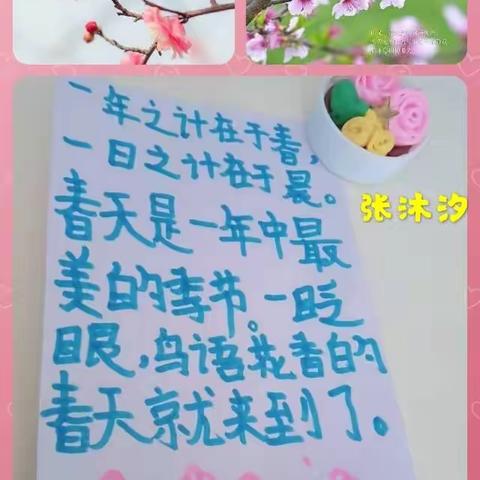 一年之计在于春，
一日之计在于晨。
春天是一年中最
美的季节。一眨
眼，鸟语花香的
春天就来到了。
张沐汐